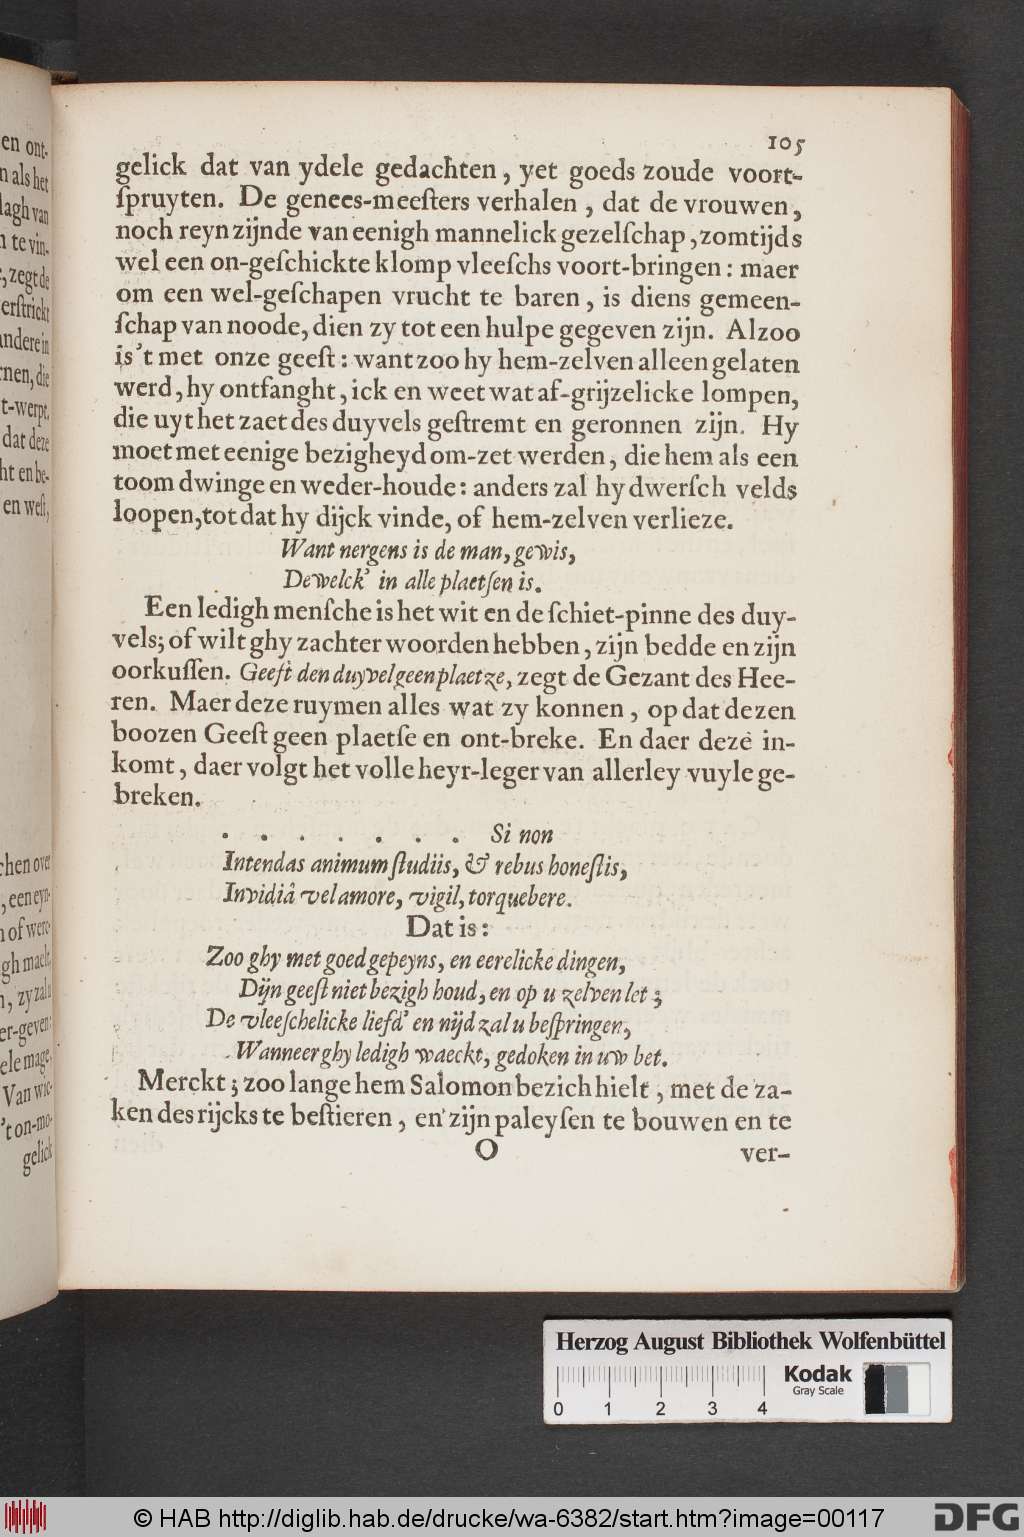 en ont-
n als het
lagh van
n te vin-
, zegt de
erſtrickt
andere in
rnen, die
t-werpt.
dat deze
ht en be-
en weſt,
chen over
, een eyn-
n of werc-
gh maekt,
n, zy zal u
er-geven:
ele mage.
Van wie-
't on-mo-
gelick
105
gelick dat van ydele gedachten, yet goeds zoude voort-
ſpruyten. De genees-meeſters verhalen, dat de vrouwen,
noch reyn zijnde van eenigh mannelick gezelſchap, zomtijds
wel een on-geſchickte klomp vleeſchs voort-bringen: maer
om een wel-geſchapen vrucht te baren, is diens gemeen-
ſchap van noode, dien zy tot een hulpe gegeven zijn. Alzoo
is 't met onze geeſt: want zoo hy hem-zelven alleen gelaten
werd, hy ontfanght, ick en weet wat af-grijzelicke lompen,
die uyt het zaet des duyvels geſtremt en geronnen zijn. Hy
moet met eenige bezigheyd om-zet werden, die hem als een
toom dwinge en weder-houde: anders zal hy dwerſch velds
loopen, tot dat hy dijck vinde, of hem-zelven verlieze.
Want nergens is de man, gewis,
Dewelck' in alle plaetſen is.
Een ledigh menſche is het wit en de ſchiet-pinne des duy-
vels; of wilt ghy zachter woorden hebben, zijn bedde en zijn
oorkuſſen. Geeft den duyvel geen plaetze, zegt de Gezant des Hee-
ren. Maer deze ruymen alles wat zy konnen, op dat dezen
boozen Geeſt geen plaetſe en ont-breke. En daer deze in-
komt, daer volgt het volle heyr-leger van allerley vuyle ge-
breken.
. . . . . . . Si non
Intendas animum ſtudiis, & rebus honeſtis,
Invidiâ vel amore, vigil, torquebere.
Dat is:
Zoo ghy met goed gepeyns, en eerelicke dingen,
Dijn geeſt niet bezigh houd, en op u zelven let;
De vleeſchelicke liefd' en nijd zal u beſpringen,
Wanneer ghy ledigh waeckt, gedoken in uw bet.
Merckt; zoo lange hem Salomon bezich hielt, met de za-
ken des rijcks te beſtieren, en zijn paleyſen te bouwen en te
O ver-
Herzog August Bibliothek Wolfenbüttel
Kodak
Gray Scale
0 1 2 3 4
© HAB http://diglib.hab.de/drucke/wa-6382/start.htm?image=00117
DFG